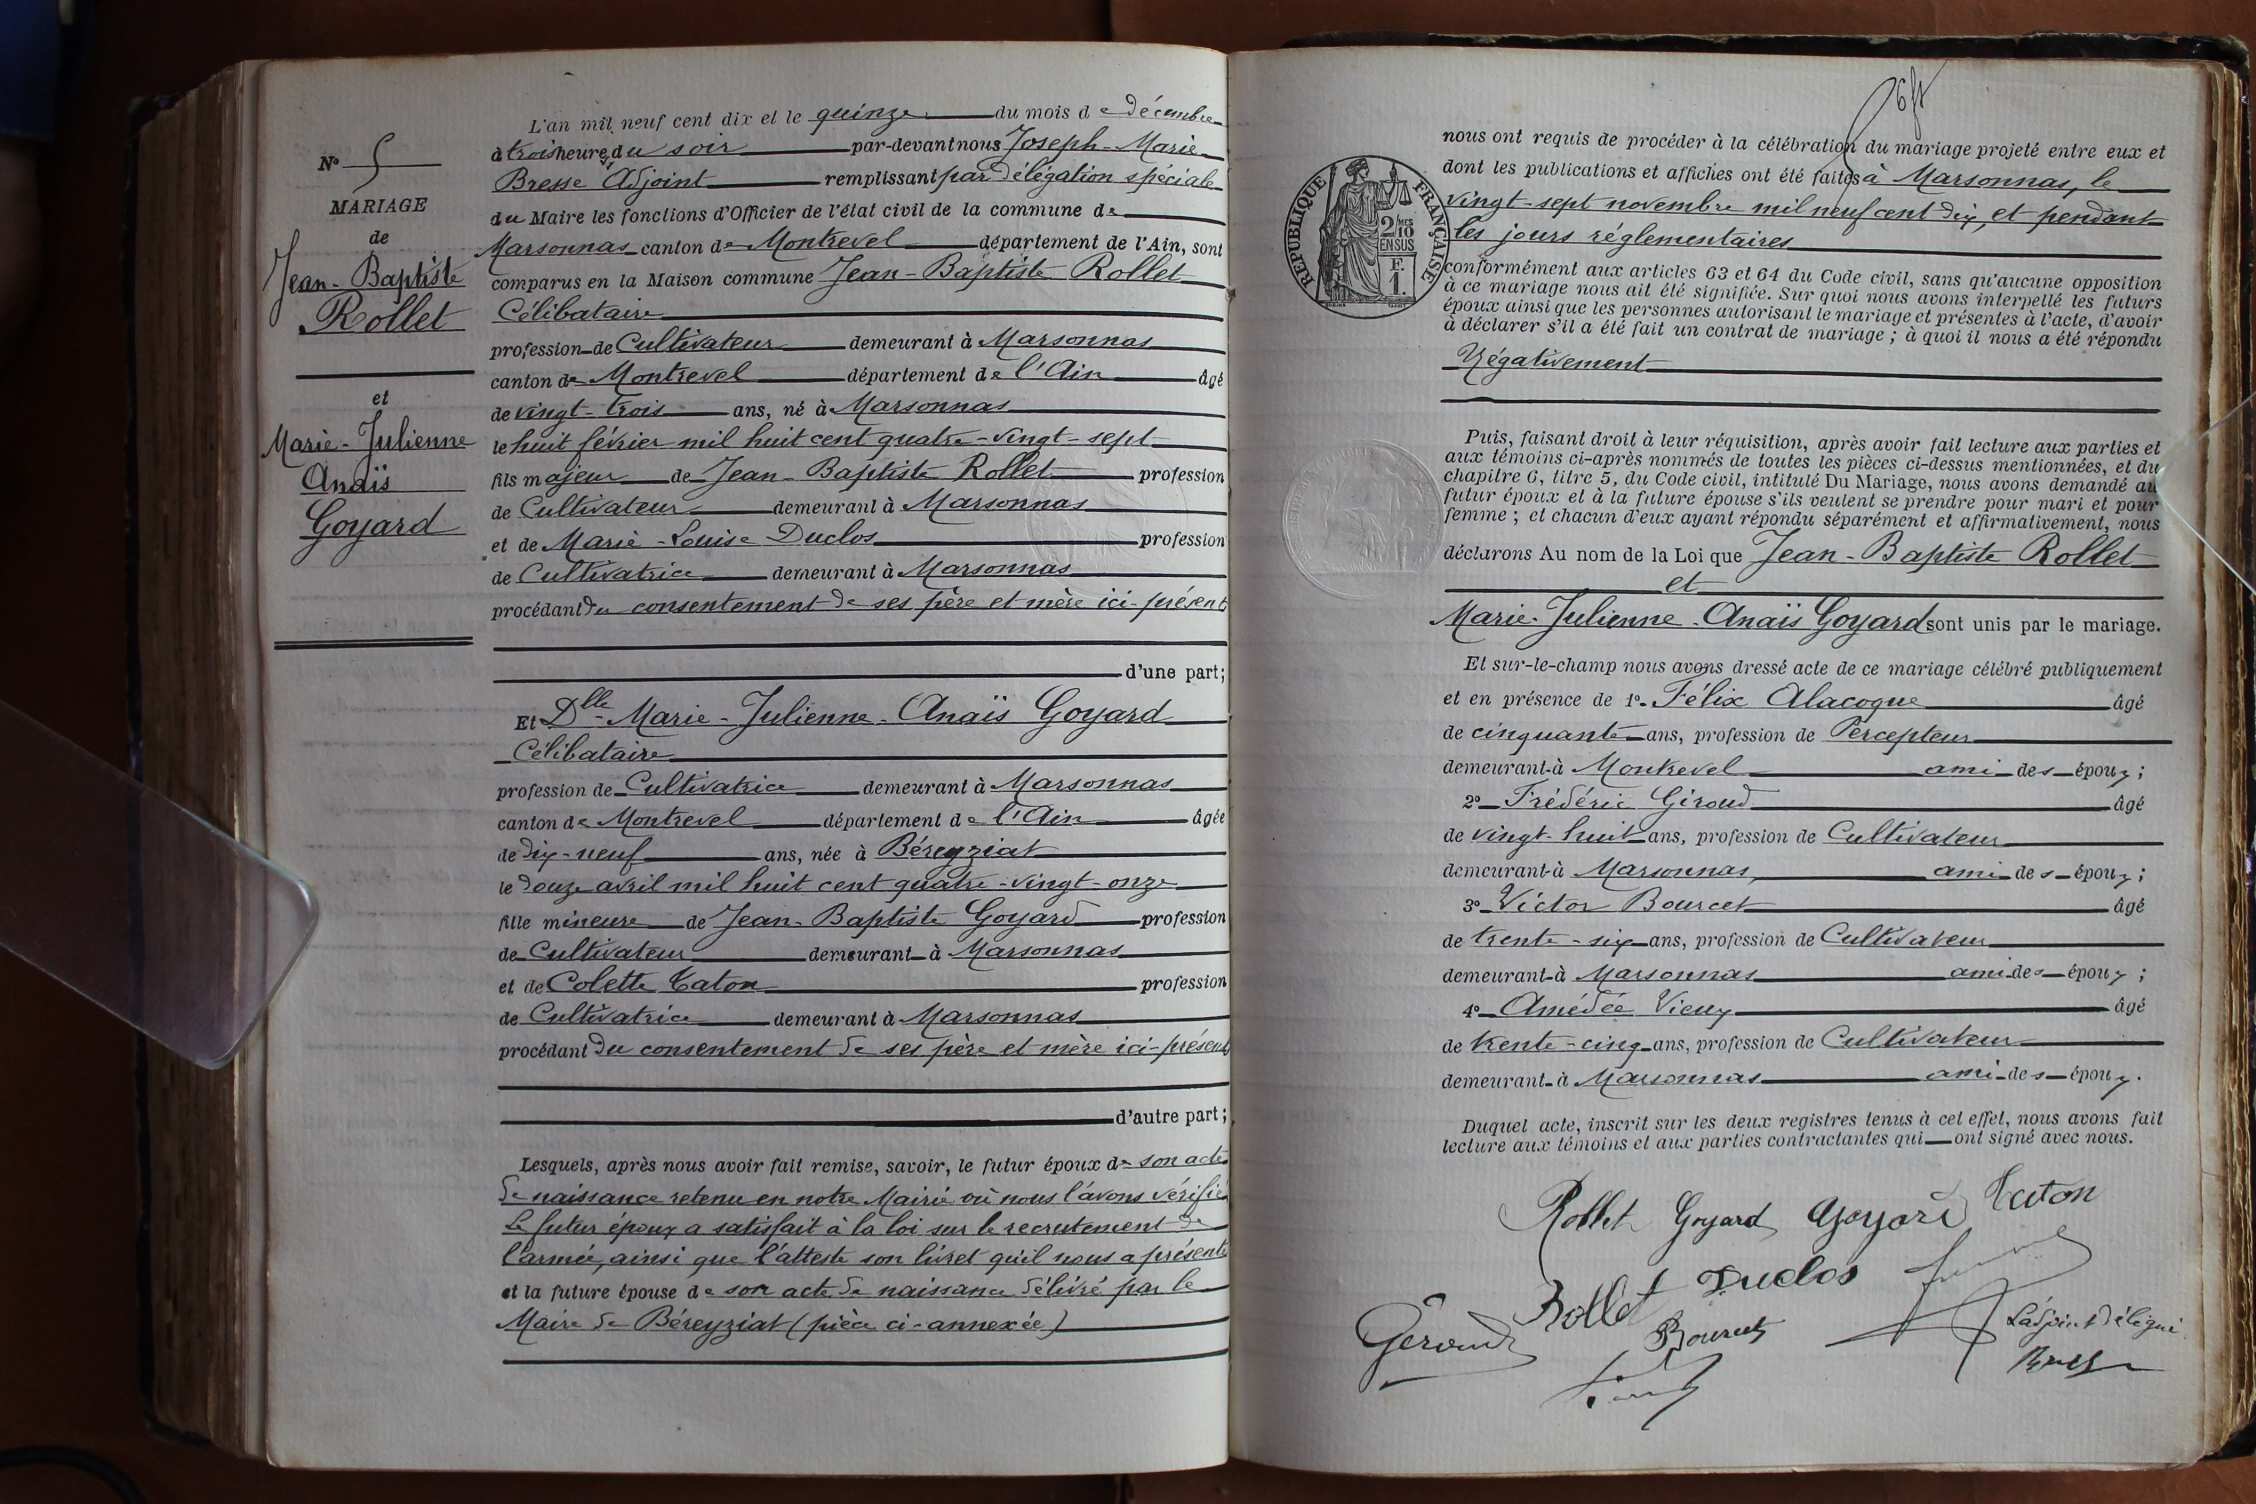 N° 5
MARIAGE
de
Jean-Baptiste
Rollet
et
Marie-Julienne
Anaïs
Goyard
L'an mil neuf cent dix et le quinze du mois de décembre
à trois heures du soir par-devant nous Joseph-Marie
Bresse Adjoint remplissant par délégation spéciale
du Maire les fonctions d'Officier de l'état civil de la commune de
Marsonnas canton de Montrevel département de l'Ain, sont
comparus en la Maison commune Jean-Baptiste Rollet
Célibataire
profession de Cultivateur demeurant à Marsonnas
canton de Montrevel département de l'Ain âgé
de vingt-trois ans, né à Marsonnas
le huit février mil huit cent quatre-vingt-sept
fils majeur de Jean-Baptiste Rollet profession
de Cultivateur demeurant à Marsonnas
et de Marie-Louise Duclos profession
de Cultivatrice demeurant à Marsonnas
procédant du consentement de ses père et mère ici-présent
d'une part;
Et Dlle Marie-Julienne-Anaïs Goyard
Célibataire
profession de Cultivatrice demeurant à Marsonnas
canton de Montrevel département de l'Ain âgée
de dix-neuf ans, née à Béreyziat
le douze avril mil huit cent quatre-vingt-onze
fille mineure de Jean-Baptiste Goyard profession
de Cultivateur demeurant à Marsonnas
et de Colette Taton profession
de Cultivatrice demeurant à Marsonnas
procédant du consentement de ses père et mère ici-présents
d'autre part;
Lesquels, après nous avoir fait remise, savoir, le futur époux de son acte
de naissance retenu en notre Mairie où nous l'avons vérifié
Le futur époux a satisfait à la loi sur le recrutement de
l'armée, ainsi que l'atteste son livret qu'il nous a présenté
et la future épouse de son acte de naissance délivré par le
Maire de Béreyziat (pièce ci-annexée)
nous ont requis de procéder à la célébration du mariage projeté entre eux et
dont les publications et affiches ont été faites à Marsonnas, le
vingt-sept novembre mil neuf cent dix, et pendant
les jours réglementaires
RÉPUBLIQUE FRANÇAISE
2/10 MES
EN SUS
F.
1.
conformément aux articles 63 et 64 du Code civil, sans qu'aucune opposition
à ce mariage nous ait été signifiée. Sur quoi nous avons interpellé les futurs
époux ainsi que les personnes autorisant le mariage et présentes à l'acte, d'avoir
à déclarer s'il a été fait un contrat de mariage; à quoi il nous a été répondu
Négativement
Puis, faisant droit à leur réquisition, après avoir fait lecture aux parties et
aux témoins ci-après nommés de toutes les pièces ci-dessus mentionnées, et du
chapitre 6, titre 5, du Code civil, intitulé Du Mariage, nous avons demandé au
futur époux et à la future épouse s'ils veulent se prendre pour mari et pour
femme; et chacun d'eux ayant répondu séparément et affirmativement, nous
déclarons Au nom de la Loi que Jean-Baptiste Rollet
et
Marie-Julienne-Anaïs Goyard sont unis par le mariage.
Et sur-le-champ nous avons dressé acte de ce mariage célébré publiquement
et en présence de 1° Félix Alacoque âgé
de cinquante ans, profession de Percepteur
demeurant à Montrevel ami des époux;
2° Frédéric Giroud âgé
de vingt-huit ans, profession de Cultivateur
demeurant à Marsonnas, ami des époux;
3° Victor Bourcet âgé
de trente-six ans, profession de Cultivateur
demeurant à Marsonnas ami des époux;
4° Amédée Vieux âgé
de trente-cinq ans, profession de Cultivateur
demeurant à Marsonnas ami des époux.
Duquel acte, inscrit sur les deux registres tenus à cet effet, nous avons fait
lecture aux témoins et aux parties contractantes qui ont signé avec nous.
Rollet Goyard Goyard Taton
Rollet Duclos
Giroud Bourcet L'adjoint délégué
Bresse